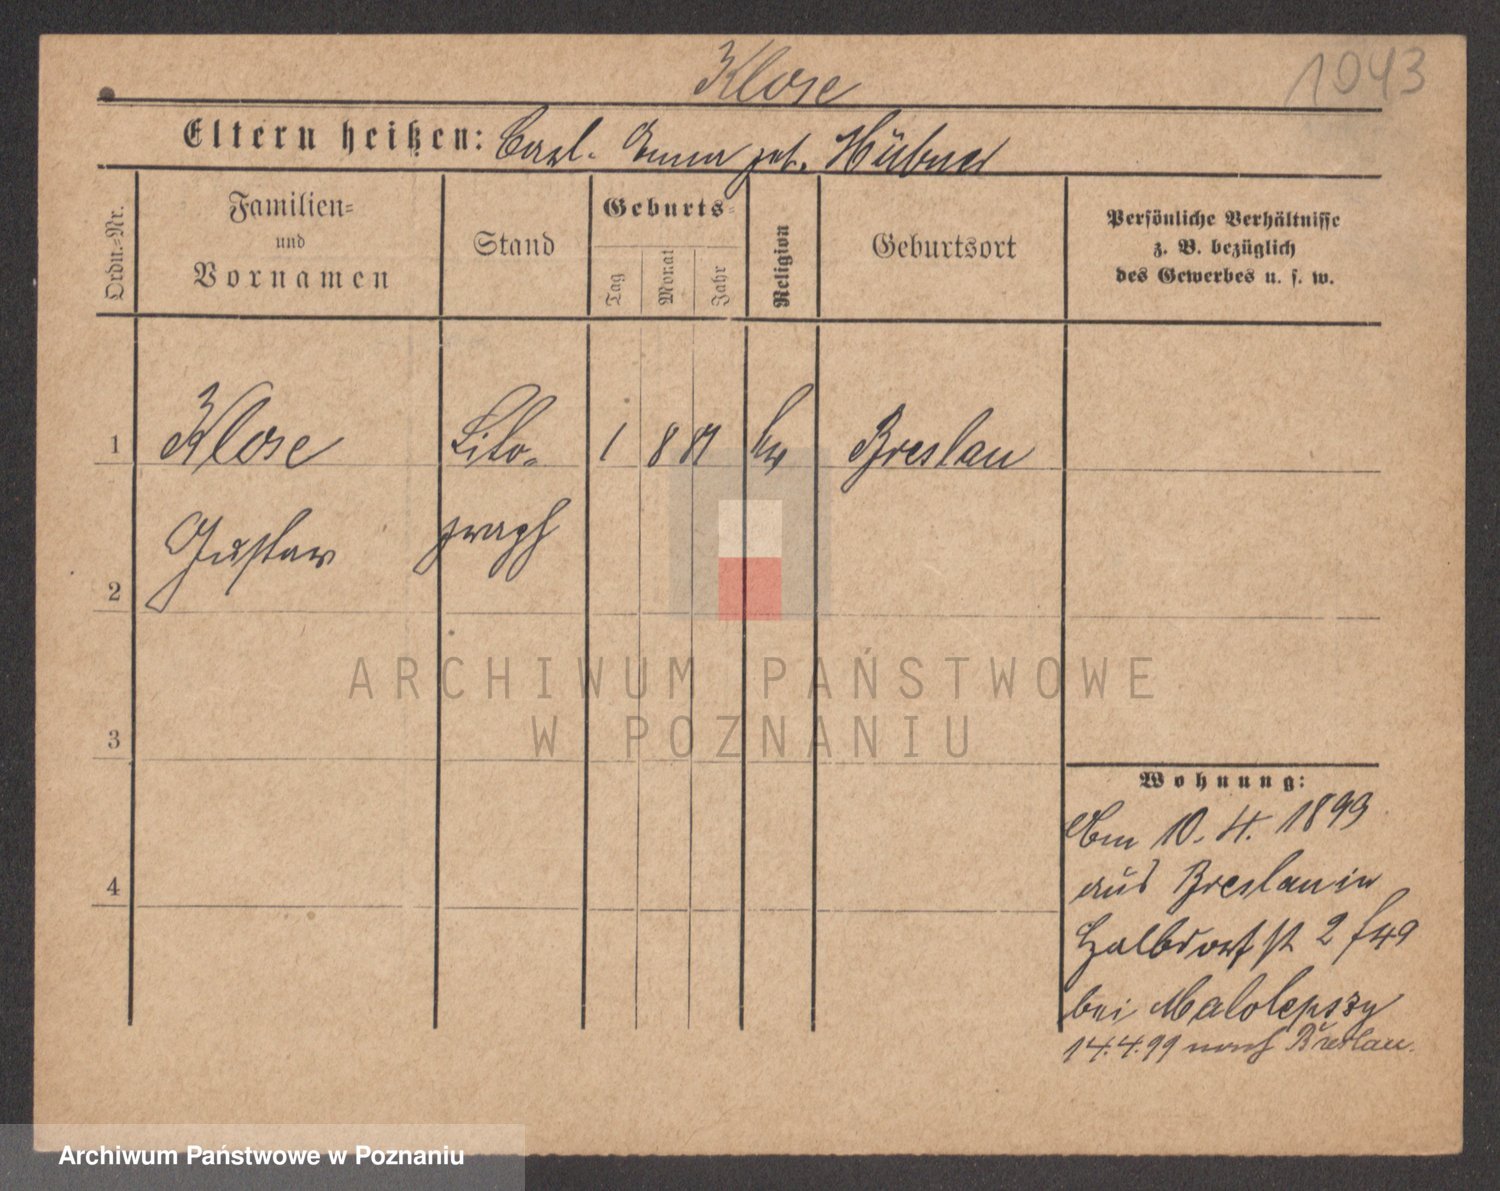 Klose
1043
Eltern heißen: Carl. Anna geb. Hübner
Ordn.=Nr.
Familien=
und
Vornamen
Stand
Geburts=
Tag
Monat
Jahr
Religion
Geburtsort
Persönliche Verhältnisse
z. B. bezüglich
des Gewerbes u. s. w.
1 Klose Lito- 1 8 81 Breslau
Gustav graph
2
3
4
Wohnung:
Am 10. 4. 1899
aus Breslau in
Halbdorfst 2
bei Malolepszy
14.4.99 nach Breslau.
ARCHIWUM PAŃSTWOWE
W POZNANIU
Archiwum Państwowe w Poznaniu